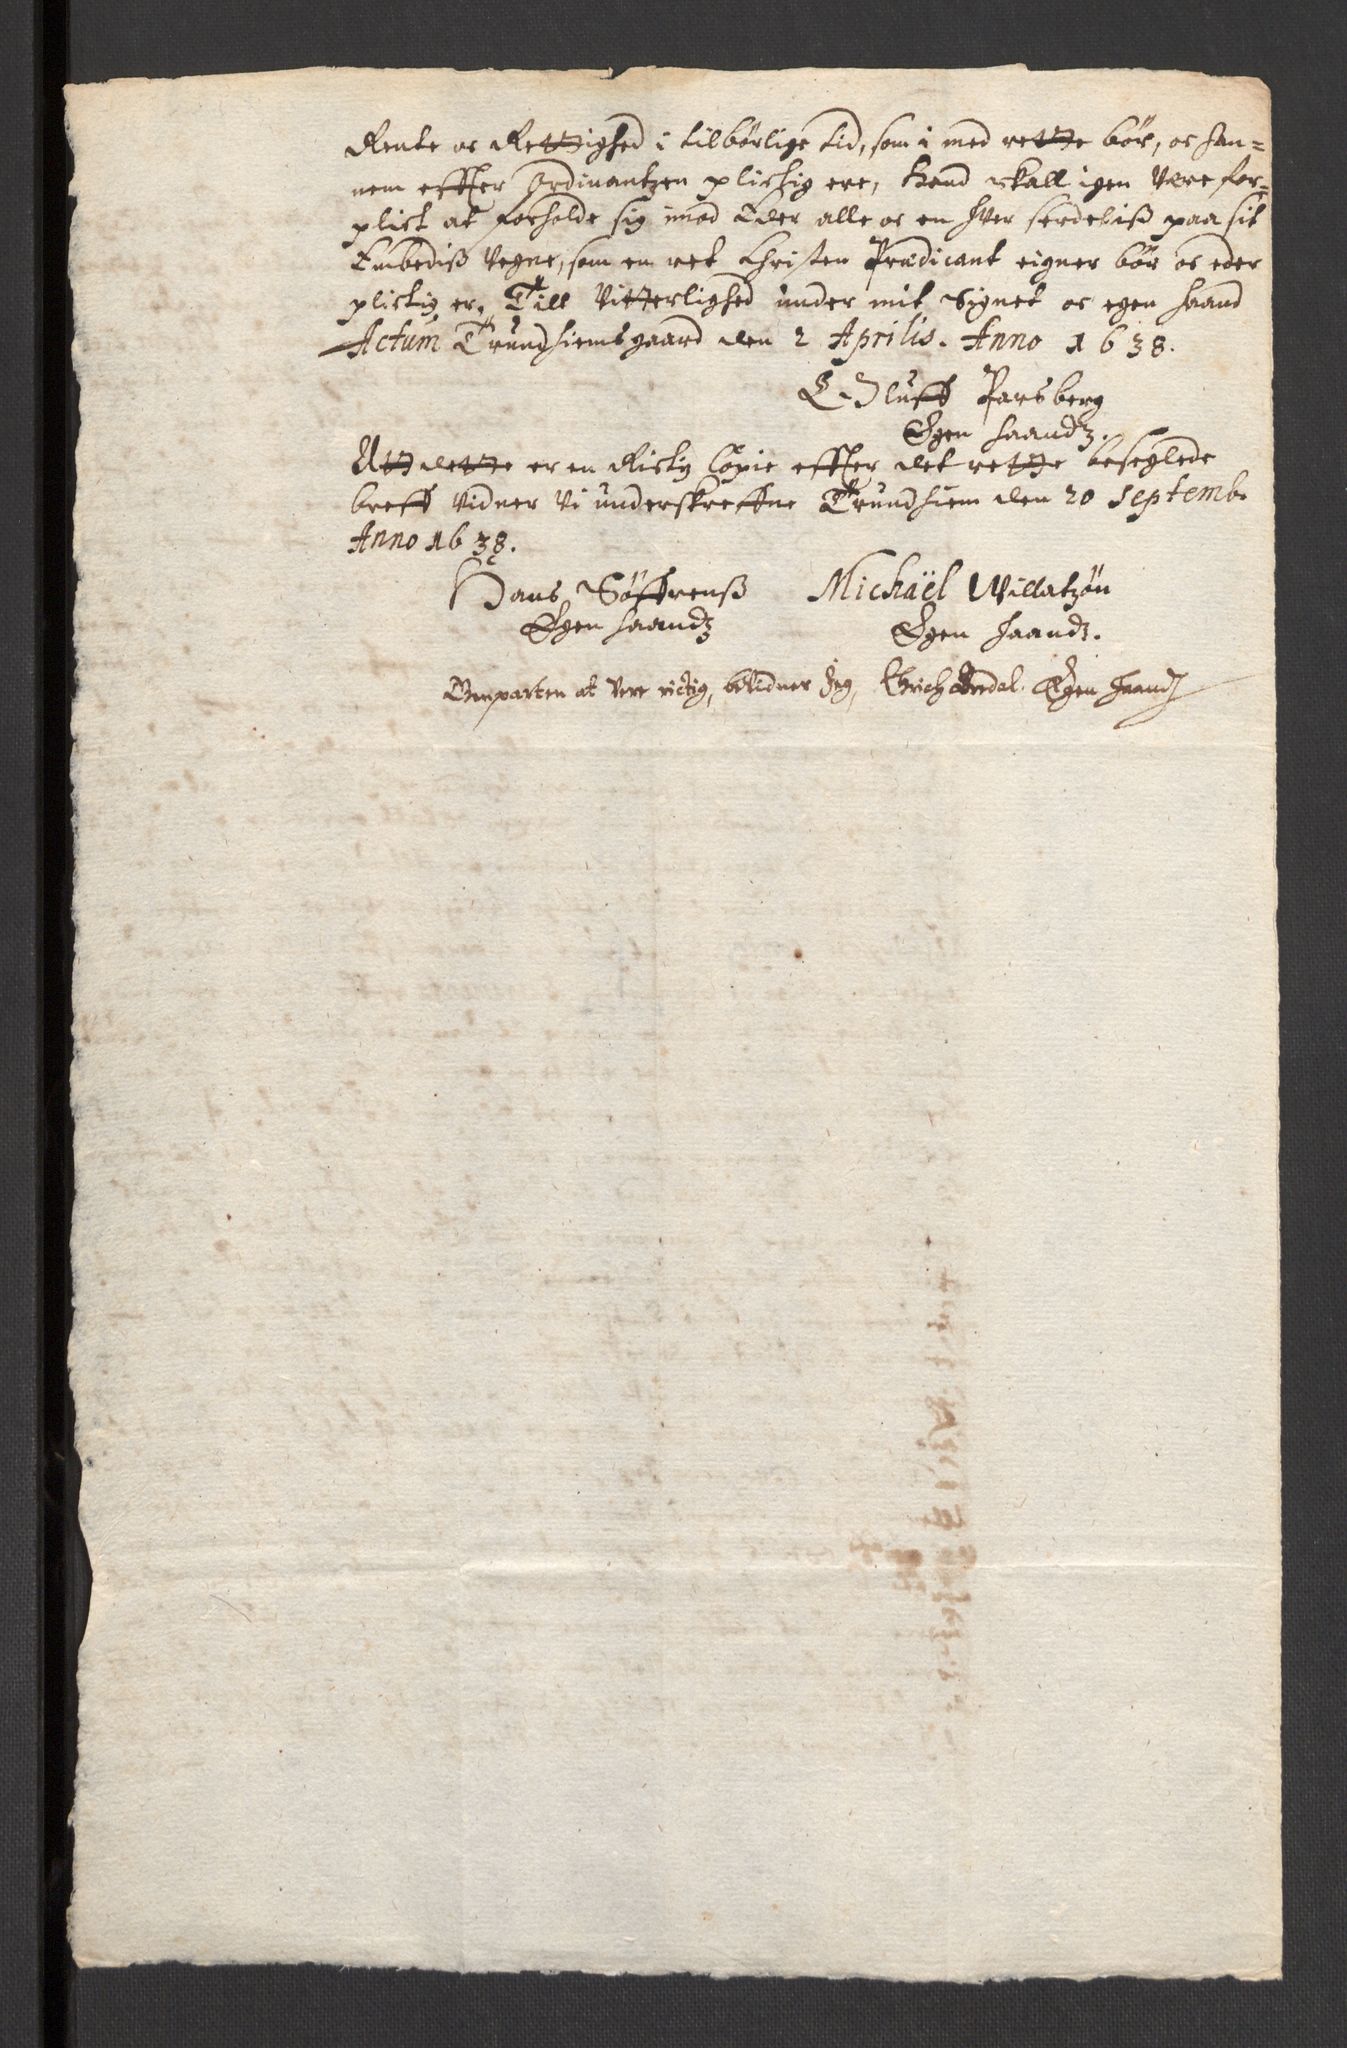 Rente oc Rettighed i tilbørlige tid, som i med rette bør, oc han-
nem effter Ordinantzen plictig ere, hand skall igen være for-
plict at forholde sig imod Eder alle oc en hver serdeliss paa sit
Embediss Vegne, som en ret Christen Prædicant eigner bør oc eder
plictig er, Till Vitterlighed under mit Signet oc egen haand
Actum Trundhiems gaard den 2 Aprilis. Anno 1638.
Oluff Parsberg
Egen haandt.
Att dette er en Rictig Copie effter det rette beseglede
breff vidner Vi underskreffne Trundhiem den 20 Septemb.
Anno 1638.
Hans Søffrenss Michaël Willatzøn
Egen haandt Egen haandt.
Genparten at vere rictig, bevidner Jeg, Erich Bredal. Egen haand